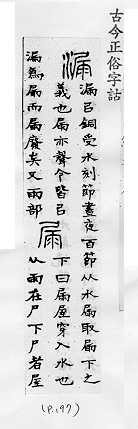 古今正俗字詁
漏
漏㠯銅受水刻節晝夜百節从水屚取屚下之
義也屚亦聲今皆㠯
漏爲屚而屚廢矣又雨部
屚
下曰屚屋穿入水也
从雨在尸下尸者屋
(P.197)